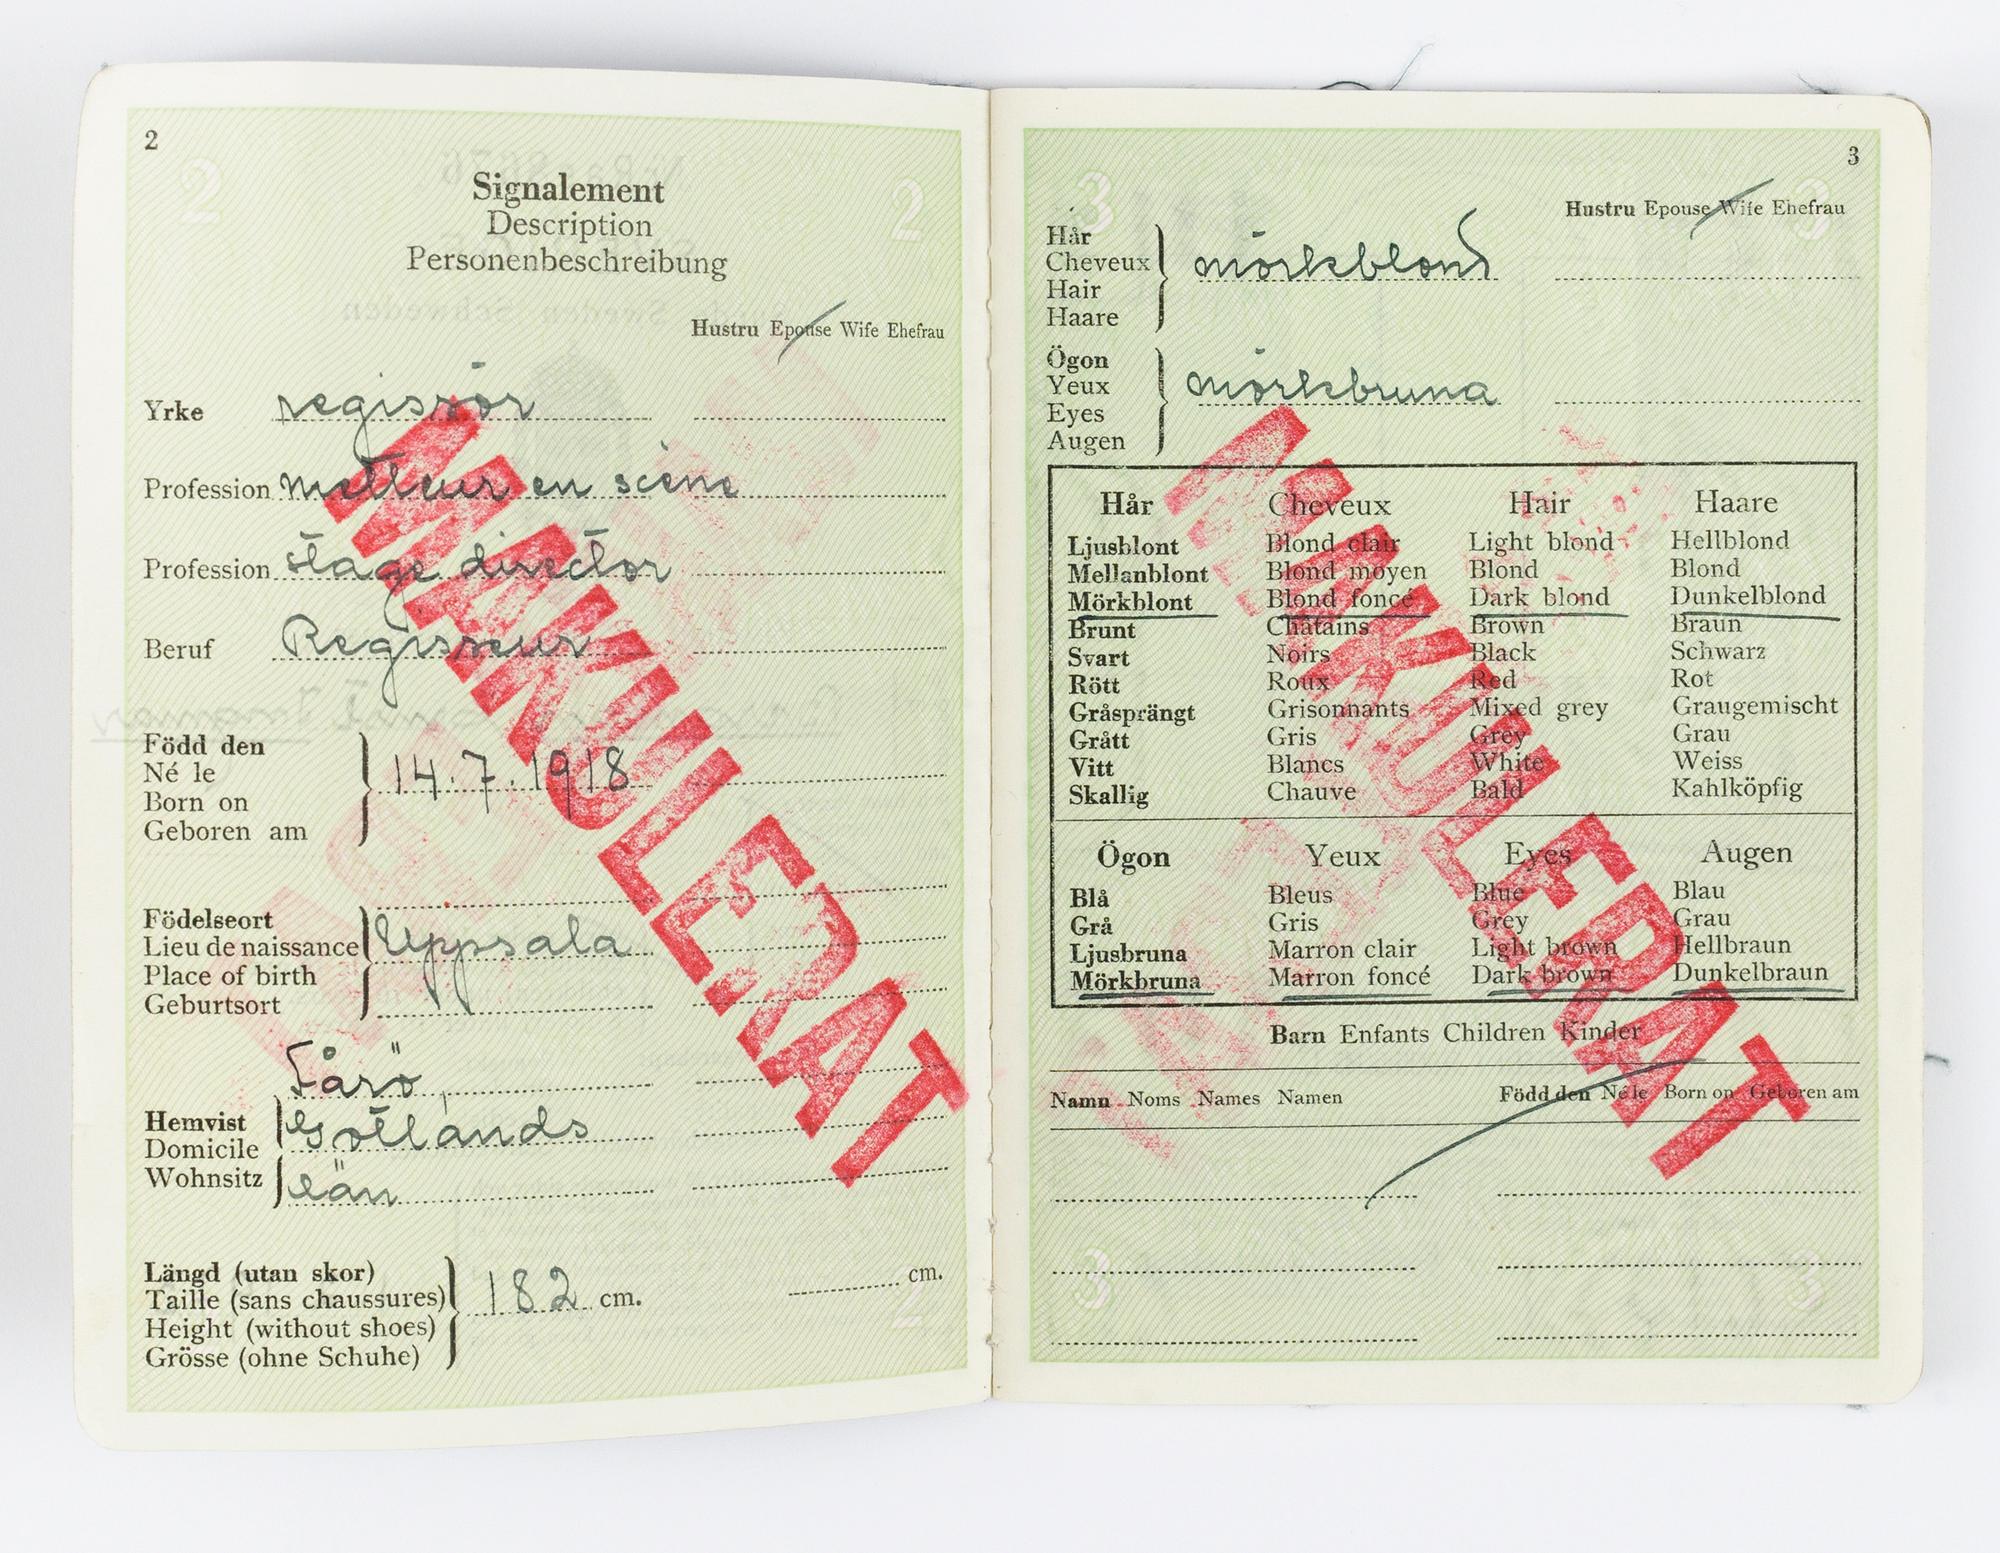 2
Signalement
Description
Personenbeschreibung
Hustru Epouse Wife Ehefrau
Yrke regissör
Profession metteur en scène
Profession stage director
Beruf Regisseur
Född den
Né le
Born on
Geboren am
14.7.1918
Födelseort
Lieu de naissance
Place of birth
Geburtsort
Uppsala
Hemvist
Domicile
Wohnsitz
Fårö,
Gotlands
län
Längd (utan skor)
Taille (sans chaussures)
Height (without shoes)
Grösse (ohne Schuhe)
182 cm.
cm.
MAKULERAT
3
Hustru Epouse Wife Ehefrau
Hår
Cheveux
Hair
Haare
mörkblond
Ögon
Yeux
Eyes
Augen
mörkbruna
Hår Cheveux Hair Haare
Ljusblont Blond clair Light blond Hellblond
Mellanblont Blond moyen Blond Blond
Mörkblont Blond foncé Dark blond Dunkelblond
Brunt Châtains Brown Braun
Svart Noirs Black Schwarz
Rött Roux Red Rot
Gråsprängt Grisonnants Mixed grey Graugemischt
Grått Gris Grey Grau
Vitt Blancs White Weiss
Skallig Chauve Bald Kahlköpfig
Ögon Yeux Eyes Augen
Blå Bleus Blue Blau
Grå Gris Grey Grau
Ljusbruna Marron clair Light brown Hellbraun
Mörkbruna Marron foncé Dark brown Dunkelbraun
Barn Enfants Children Kinder
Namn Noms Names Namen Född den Né le Born on Geboren am
MAKULERAT